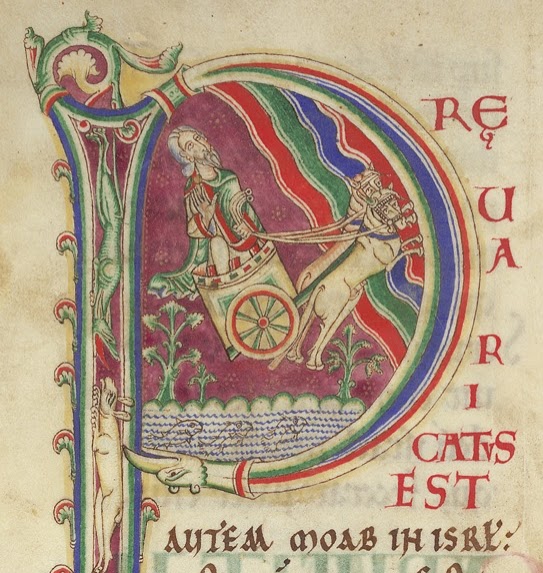 PRĘ
U
A
R
I
CATVS
EST
AUTEM MOAB IN ISRƚ: